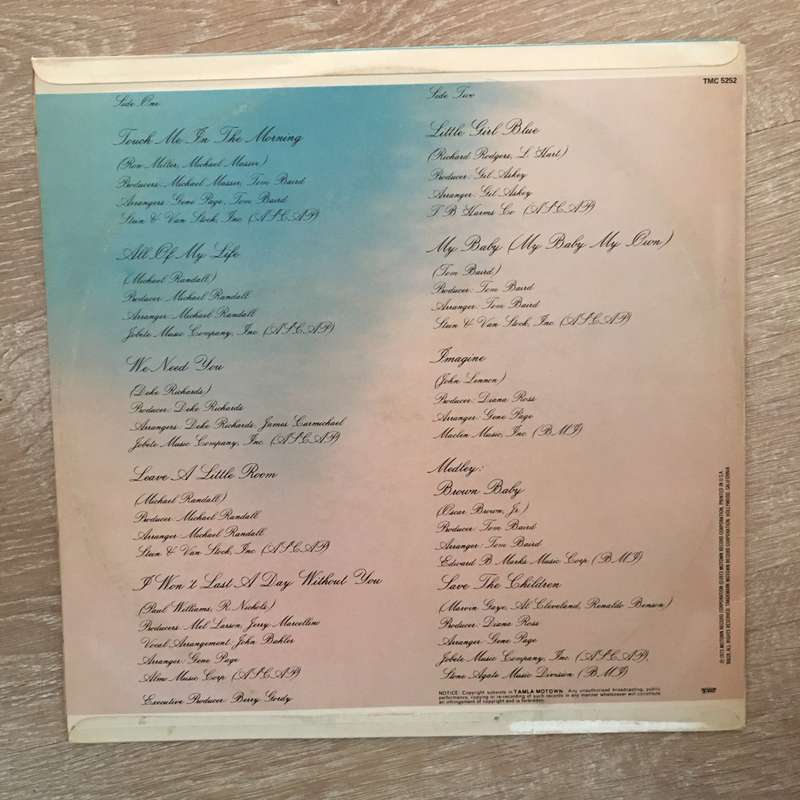 TMC 5252
Side One
Touch Me In The Morning
(Ron Miller, Michael Masser)
Producers: Michael Masser, Tom Baird
Arrangers: Gene Page, Tom Baird
Stein & Van Stock, Inc. (ASCAP)
All Of My Life
(Michael Randall)
Producer: Michael Randall
Arranger: Michael Randall
Jobete Music Company, Inc. (ASCAP)
We Need You
(Deke Richards)
Producer: Deke Richards
Arrangers: Deke Richards, James Carmichael
Jobete Music Company, Inc. (ASCAP)
Leave A Little Room
(Michael Randall)
Producer: Michael Randall
Arranger: Michael Randall
Stein & Van Stock, Inc. (ASCAP)
I Won't Last A Day Without You
(Paul Williams, R. Nichols)
Producers: Mel Larson, Jerry Marcellino
Vocal Arrangement: John Bahler
Arranger: Gene Page
Almo Music Corp. (ASCAP)
Executive Producer: Berry Gordy
Side Two
Little Girl Blue
(Richard Rodgers, L. Hart)
Producer: Gil Askey
Arranger: Gil Askey
T. B. Harms Co. (ASCAP)
My Baby (My Baby My Own)
(Tom Baird)
Producer: Tom Baird
Arranger: Tom Baird
Stein & Van Stock, Inc. (ASCAP)
Imagine
(John Lennon)
Producer: Diana Ross
Arranger: Gene Page
Maclen Music, Inc. (BMI)
Medley:
Brown Baby
(Oscar Brown, Jr.)
Producer: Tom Baird
Arranger: Tom Baird
Edward B. Marks Music Corp. (BMI)
Save The Children
(Marvin Gaye, Al Cleveland, Renaldo Benson)
Producer: Diana Ross
Arranger: Gene Page
Jobete Music Company, Inc. (ASCAP),
Stone Agate Music Division (BMI)
NOTICE: Copyright subsists in TAMLA MOTOWN. Any unauthorised broadcasting, public
performance, copying or re-recording of such records in any manner whatsoever will constitute
an infringement of copyright and is forbidden.
℗ 1973 MOTOWN RECORD CORPORATION ©1973 MOTOWN RECORD CORPORATION, PRINTED IN U.S.A.
ALL RIGHTS RESERVED. TRADEMARK MOTOWN RECORD CORPORATION, HOLLYWOOD, CALIFORNIA